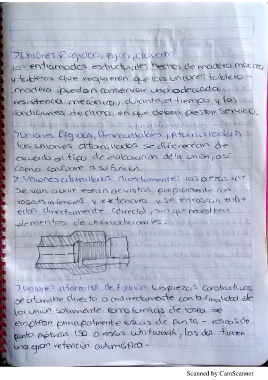 > Uniones Rigidas, Fijas, clavadas
los entramados estructurales hechos de madera maciza
y tableros que requieren que las uniones tablero-
madera puedan conservar una adecuada
resistencia mecanica, durante el tiempo y las
condiciones de clima en que deben prestar servicio.
> Uniones Rigidas, Desmontables, Atornilladas:
las uniones atornilladas se diferencian de
acuerdo al tipo de elaboración de la unión, así
como conforme a su función.
> Uniones atornilladas directamente: las piezas que
se van a unir están provistas propiamente con
roscas interiores y exteriores y se enroscan entre
ellas directamente (directo), sin que necesiten
elementos de
> Uniones atornillas de fijación las piezas constructivas
se atornillan directo o indirectamente con la finalidad de
los unir solamente como formas de rosca se
emplean principalmente roscas de punta - roscas de
punta métricas ISO o roscas whitworth, las dos tienen
una gran retención automática.
Scanned by CamScanner